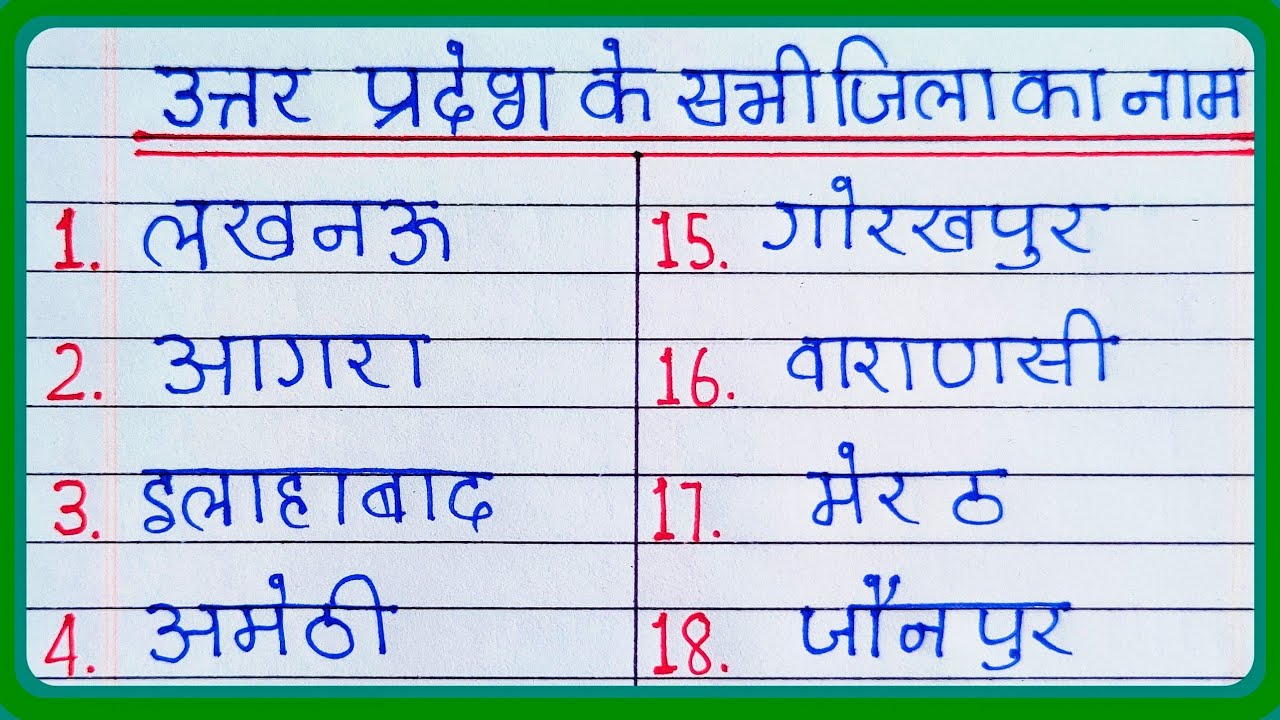 उत्तर प्रदेश के सभी जिला का नाम
1. लखनऊ
2. आगरा
3. इलाहाबाद
4. अमेठी
15. गोरखपुर
16. वाराणसी
17. मेरठ
18. जौनपुर